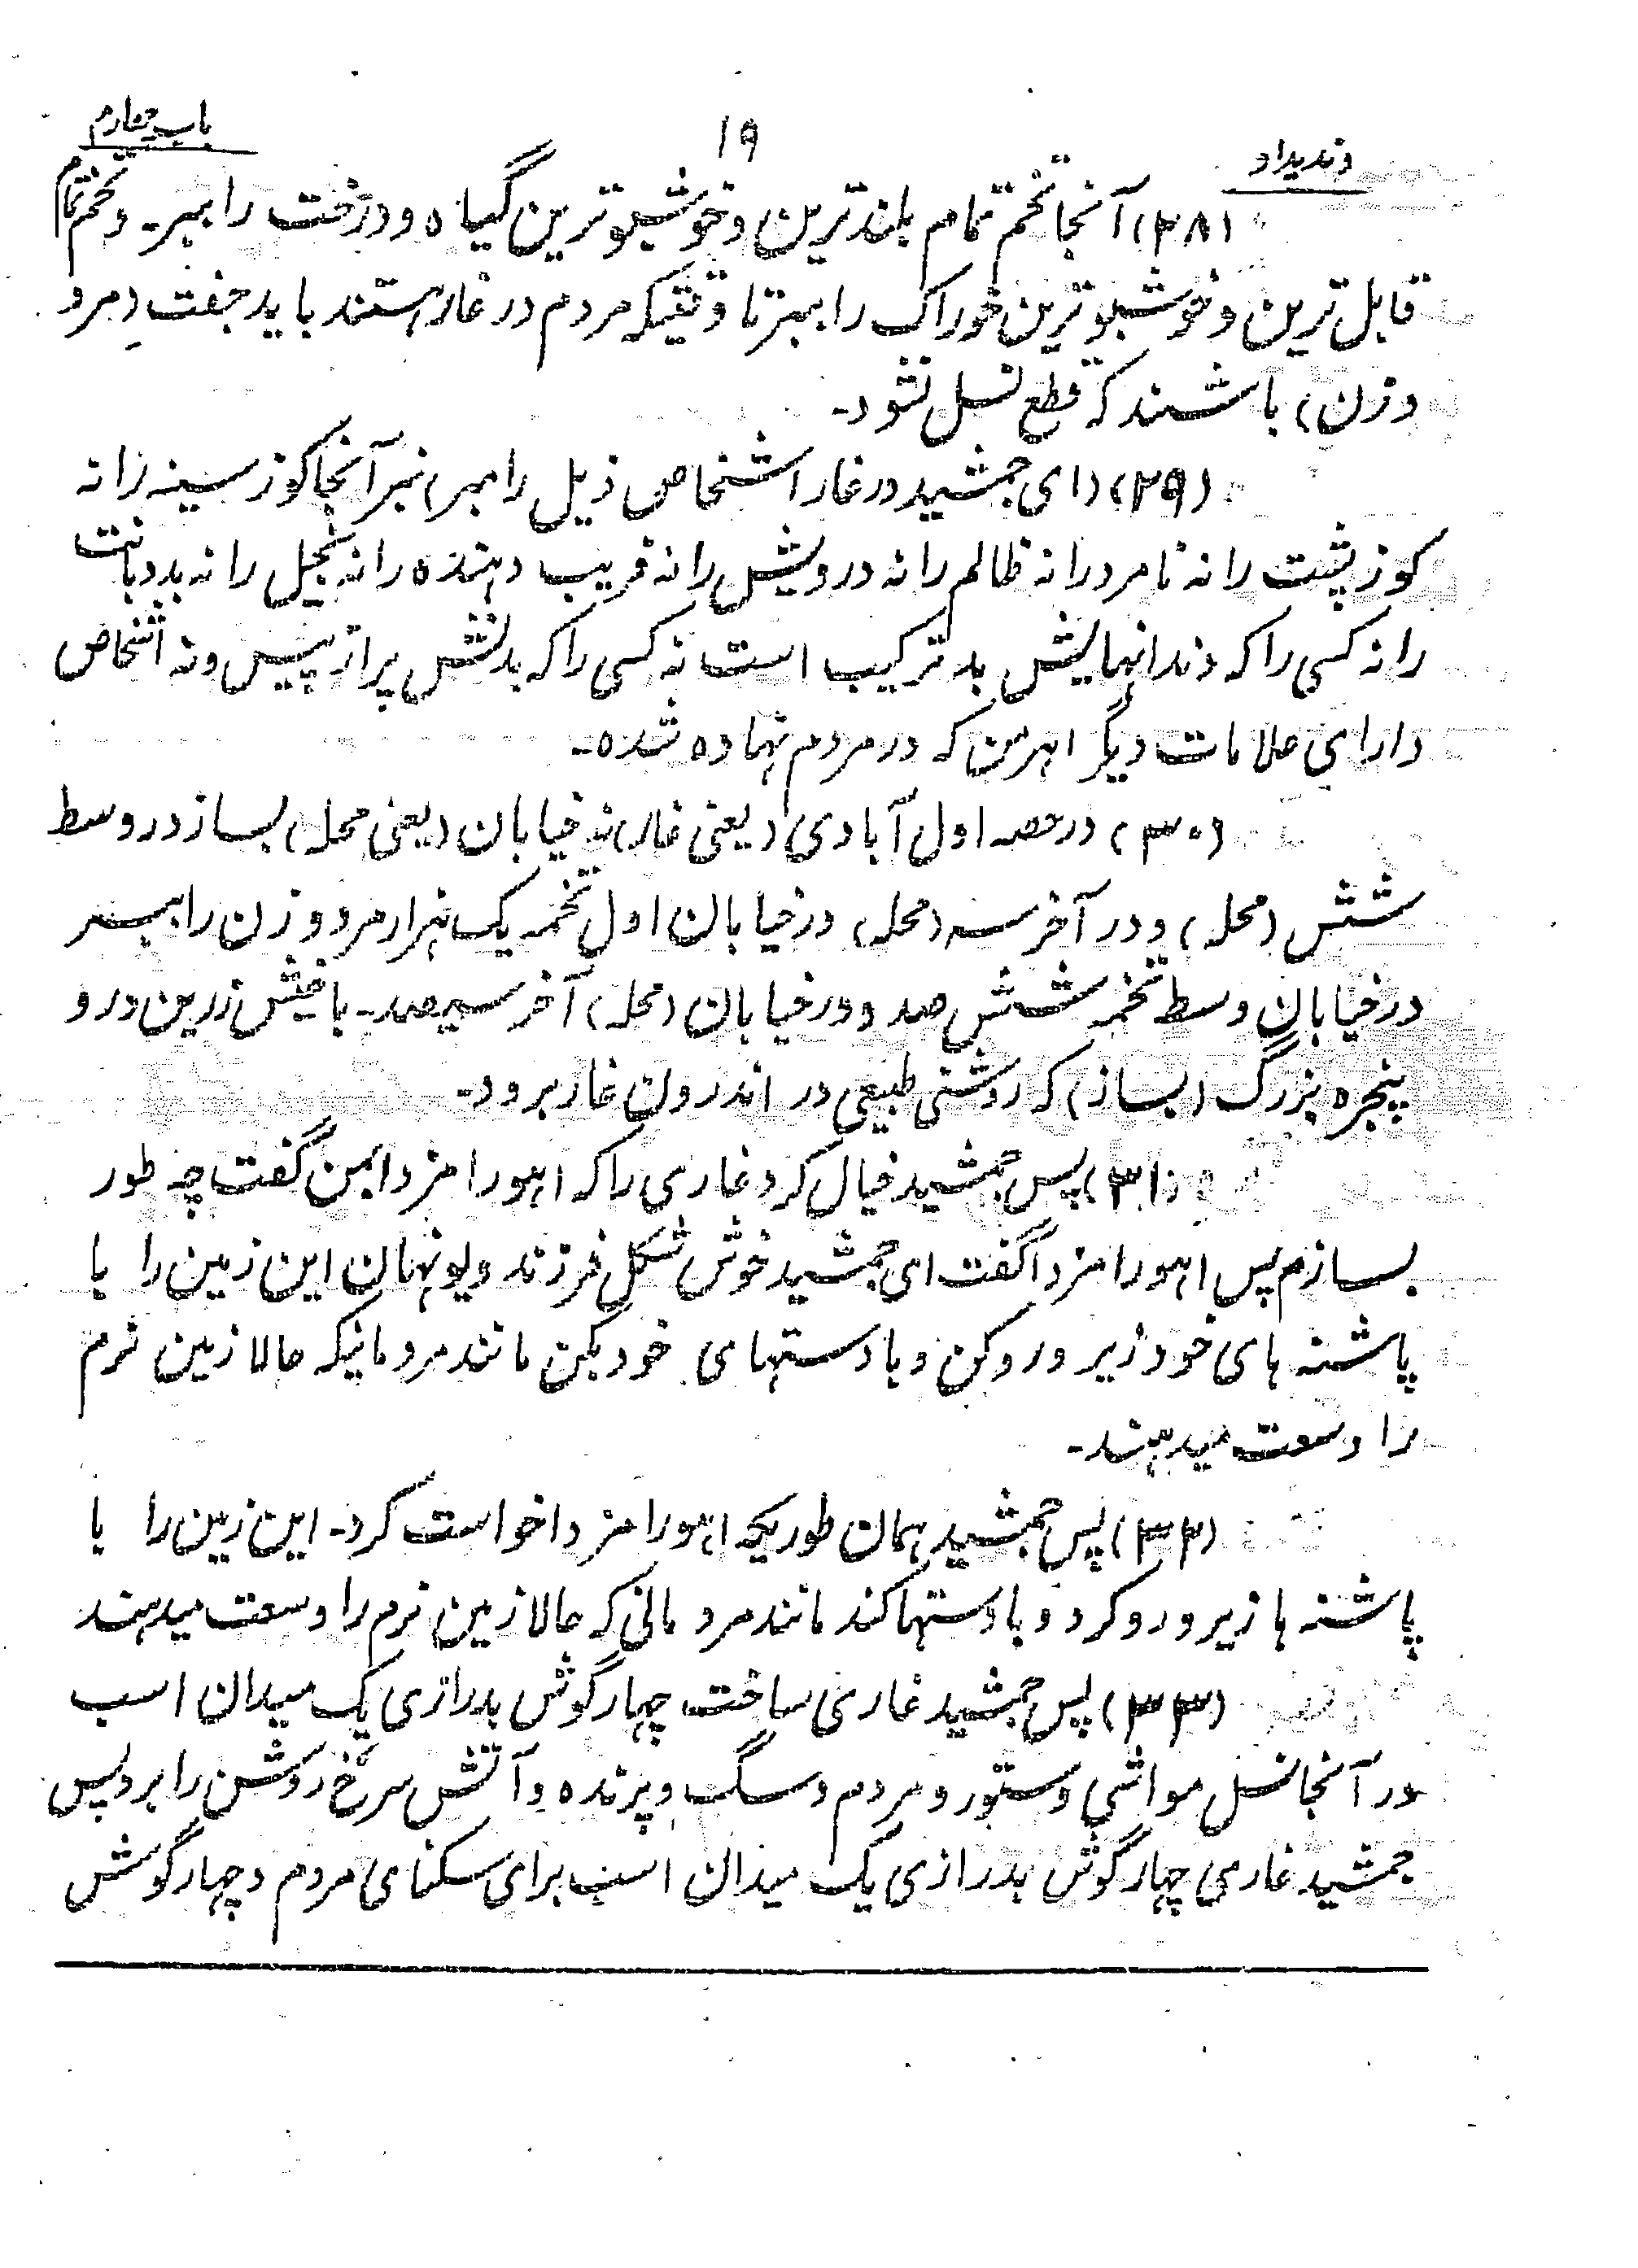 وندیداد
۱۹
باب چهارم
(۲۸) آنجا تخم تمام بلندترین و خوشبوترین گیاه و درخت را ببر۔ و تخم تمام
قابل ترین و خوشبوترین خوراک را ببر تا وقتیکه مردم در غار هستند باید جفت (مرد
و زن) باشند که قطع نسل نشود۔
(۲۹) (ای جمشید در غار اشخاص ذیل را مبر) نبر آنجا کوز سینه را نه
کوز پشت را نه نامرد را نه ظالم را نه درویش را نه فریب دهنده را نه بخیل را نه بددیانت
را نه کسی را که دندانهایش بد ترکیب است نه کسی را که بدنش پر از پیس و نه اشخاص
دارای علامات دیگر اهرمن که در مردم نهاده شده۔
(۳۰) در حصه اول آبادی (یعنی غار) نه خیابان (یعنی محله) بساز در وسط
شش (محله) و در آخر سه (محله) در خیابان اول تخمه یک هزار مرد و زن را ببر
در خیابان وسط تخمه شش صد و در خیابان (محله) آخر سیصد۔ با خیش زرین در و
پنجره بزرگ (بساز) که روشنی طبیعی در اندرون غار برود۔
(۳۱) پس جمشید خیال کرد غاری را که اهورامزدا بمن گفت چه طور
بسازم پس اهورامزدا گفت ای جمشید خوش شکل فرزند ویونهان این زمین را با
پاشنه های خود زیر و رو کن و با دستهای خود بکن مانند مردمانیکه حالا زمین نرم
را وسعت میدهند۔
(۳۲) پس جمشید همان طوریکه اهورامزدا خواست کرد۔ این زمین را با
پاشنه ها زیر و رو کرد و با دستها کند مانند مردمانی که حالا زمین نرم را وسعت میدهند
(۳۳) پس جمشید غاری ساخت چهار گوش بدرازی یک میدان اسب
در آنجا نسل مواشی و ستور و مردم و سگ و پرنده و آتش سرخ روشن را برد پس
جمشید غاری چهار گوش بدرازی یک میدان اسب برای سکنای مردم و چهار گوش